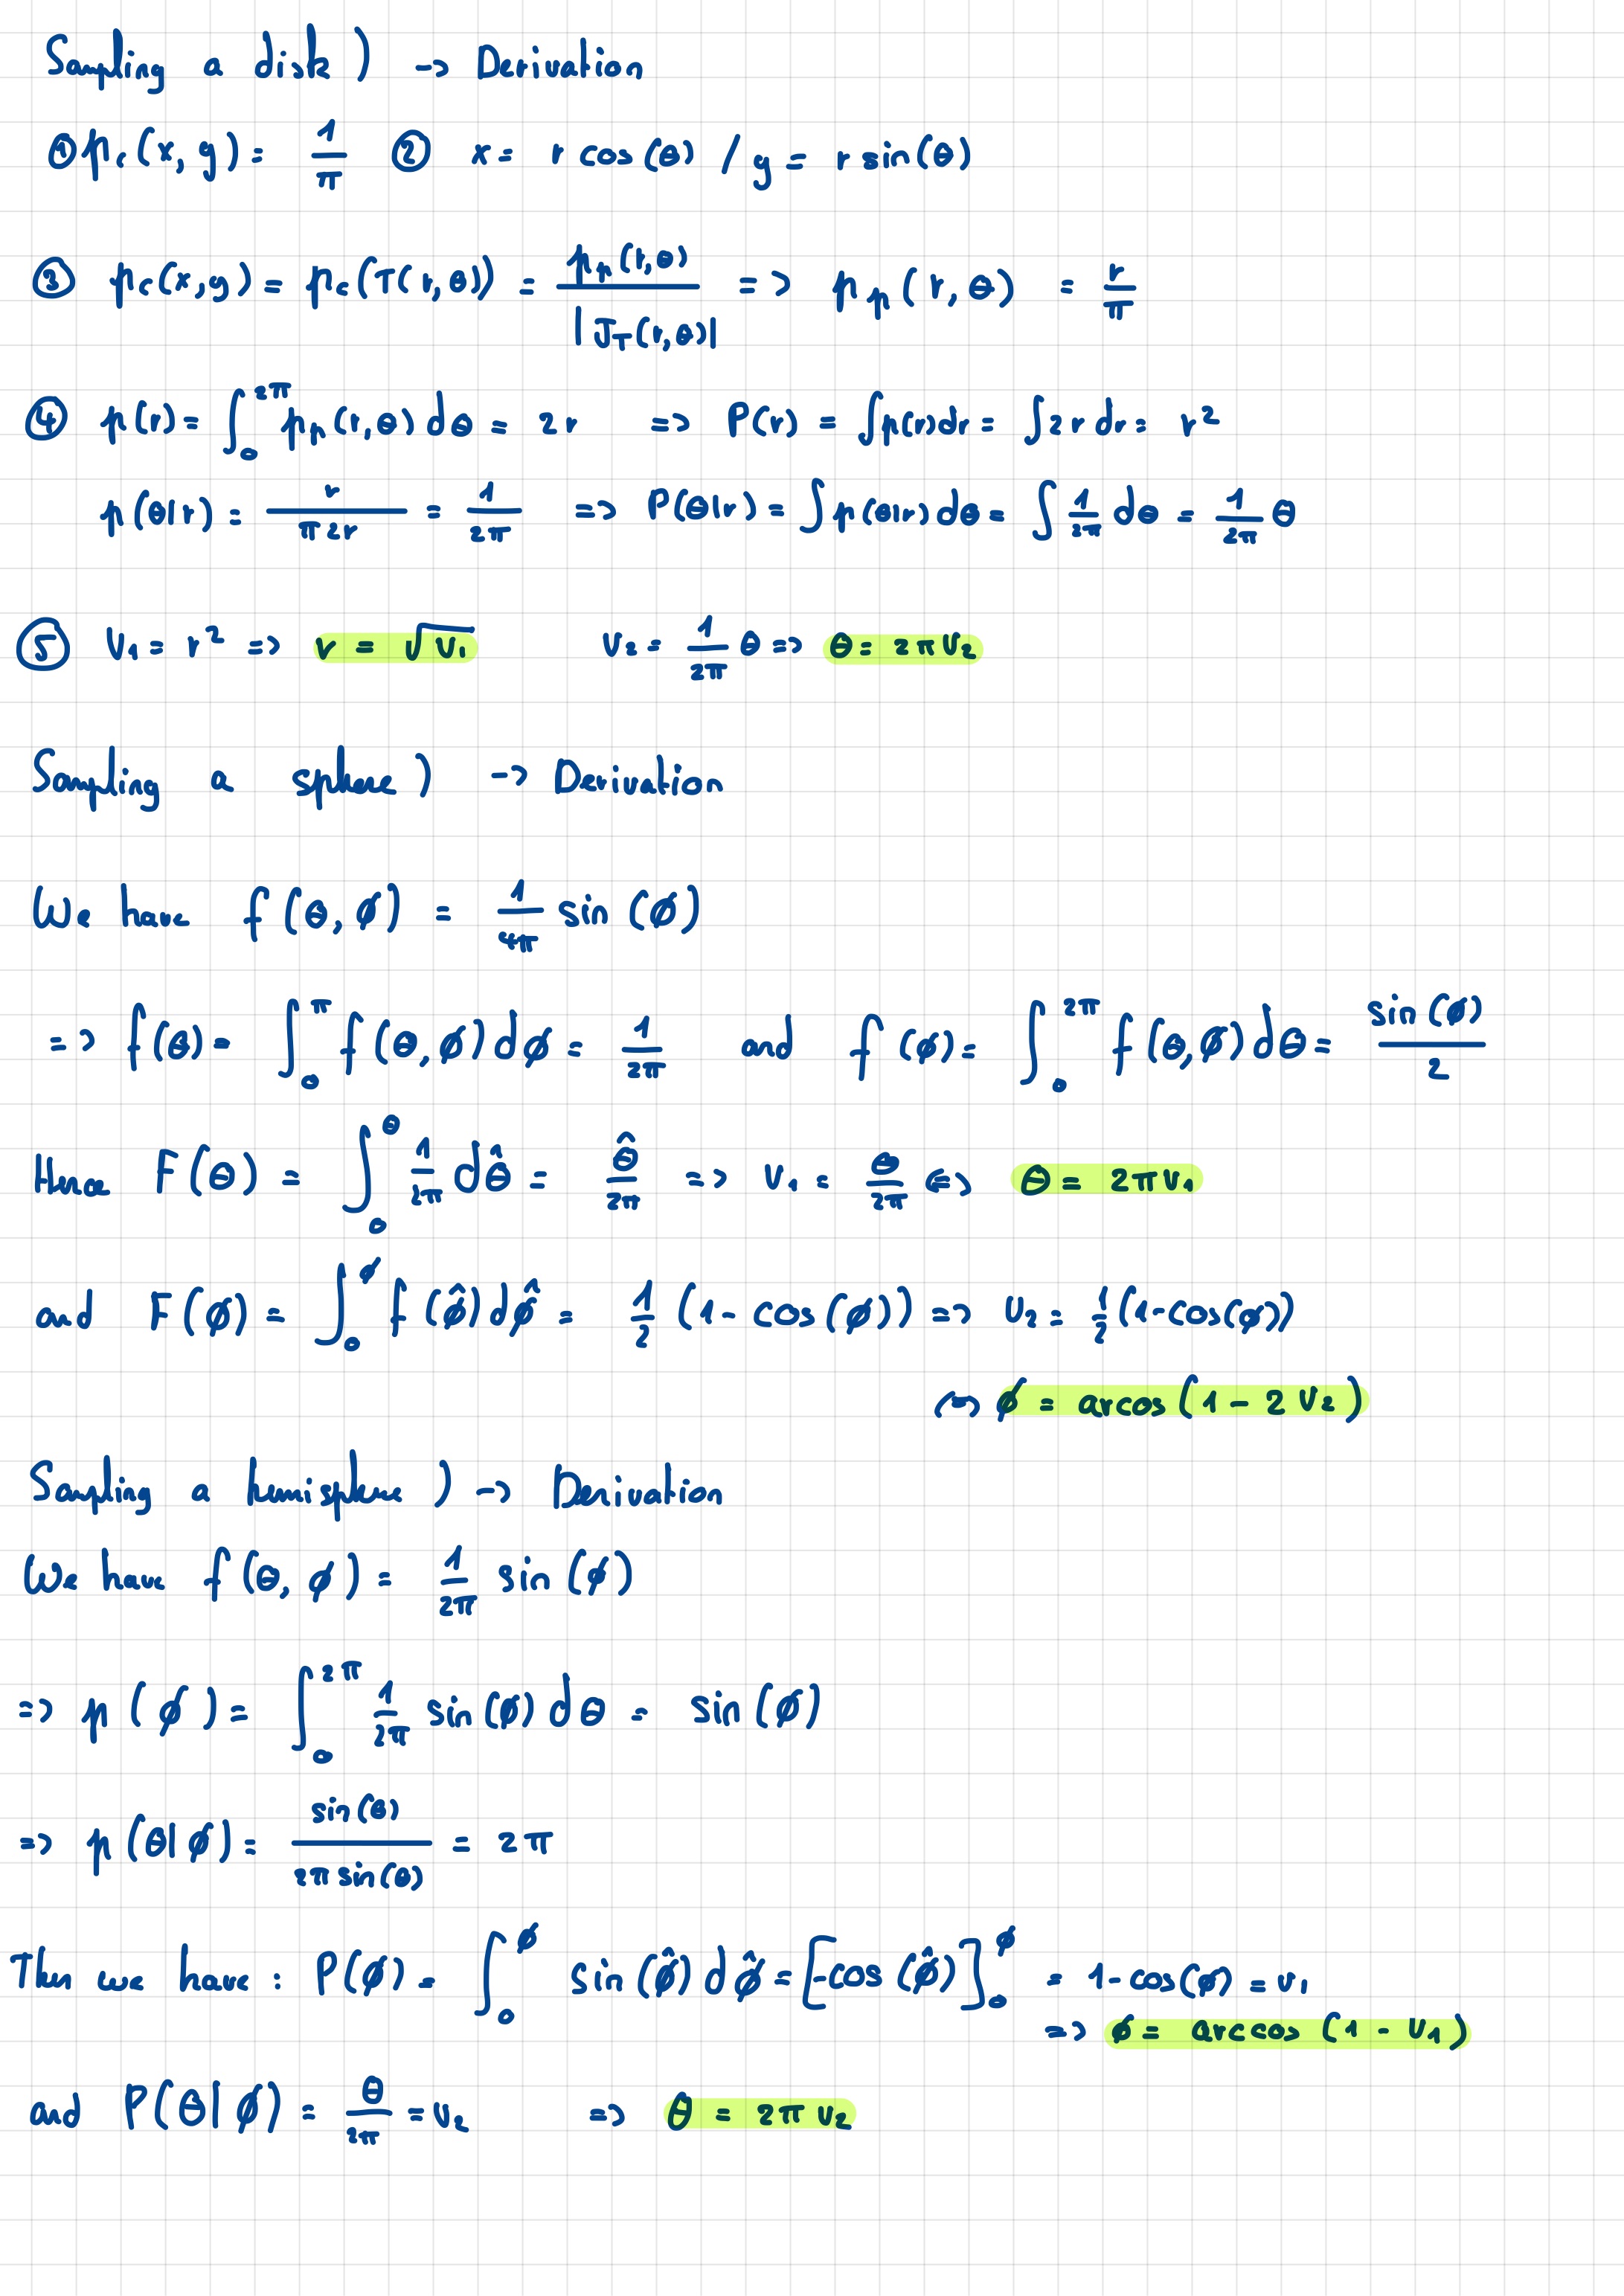 Sampling a disk) -> Derivation
① p_c(x,y) = 1/π ② x = r cos(θ) / y = r sin(θ)
③ p_c(x,y) = p_c(T(r,θ)) = p_p(r,θ) / |J_T(r,θ)| => p_p(r,θ) = r/π
④ p(r) = ∫_0^{2π} p_p(r,θ) dθ = 2r => P(r) = ∫p(r)dr = ∫2r dr = r²
p(θ|r) = r / (π2r) = 1/(2π) => P(θ|r) = ∫p(θ|r)dθ = ∫ 1/(2π) dθ = 1/(2π) θ
⑤ U₁ = r² => r = √U₁ U₂ = 1/(2π) θ => θ = 2πU₂
Sampling a sphere) -> Derivation
We have f(θ,ϕ) = 1/(4π) sin(ϕ)
=> f(θ) = ∫_0^π f(θ,ϕ)dϕ = 1/(2π) and f(ϕ) = ∫_0^{2π} f(θ,ϕ)dθ = sin(ϕ)/2
Hence F(θ) = ∫_0^θ 1/(2π) dθ̂ = θ̂/(2π) => U₁ = θ/(2π) <=> θ = 2πU₁
and F(ϕ) = ∫_0^ϕ f(ϕ̂)dϕ̂ = 1/2 (1-cos(ϕ)) => U₂ = 1/2(1-cos(ϕ))
<=> ϕ = arcos(1-2U₂)
Sampling a hemisphere) -> Derivation
We have f(θ,ϕ) = 1/(2π) sin(ϕ)
=> p(ϕ) = ∫_0^{2π} 1/(2π) sin(ϕ)dθ = sin(ϕ)
=> p(θ|ϕ) = sin(θ) / (2π sin(θ)) = 2π
Then we have: P(ϕ) = ∫_0^ϕ sin(ϕ̂)dϕ̂ = [-cos(ϕ̂)]_0^ϕ = 1-cos(ϕ) = U₁
=> ϕ = arccos(1-U₁)
and P(θ|ϕ) = θ/(2π) = U₂ => θ = 2πU₂